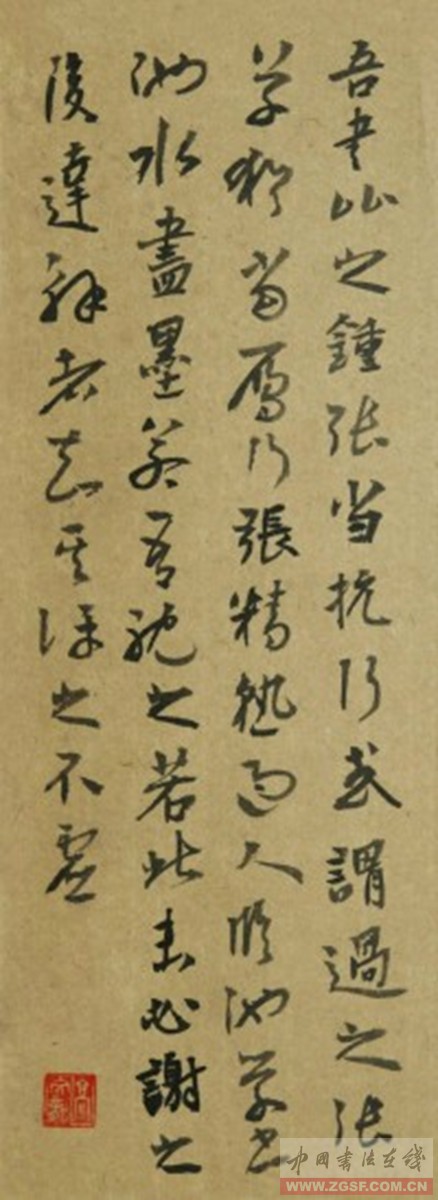 吾書比之鍾張当抗行或謂過之張
草猶當雁行張精熟過人臨池學書
池水盡墨若吾耽之若此未必謝之
後達解者知其評之不虛
中國书法在线
WWW.ZGSF.COM.CN